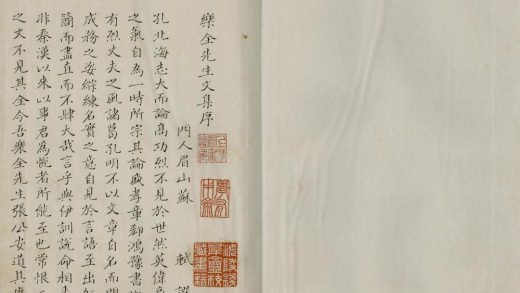 樂全先生文集序
門人眉山蘇 軾 譔
孔北海志大而論高功烈不見於世然英偉
之氣自為一時所宗其論盛孝章郗鴻豫書
有烈丈夫之風諸葛孔明不以文章自名而開
成務之姿綜練名實之意自見於言語至出師
簡而盡直而不肆大哉言乎與伊訓說命相表
非秦漢以來以事君為悅者所能至也常恨二
之文不見其全今吾樂全先生張公安道其庶